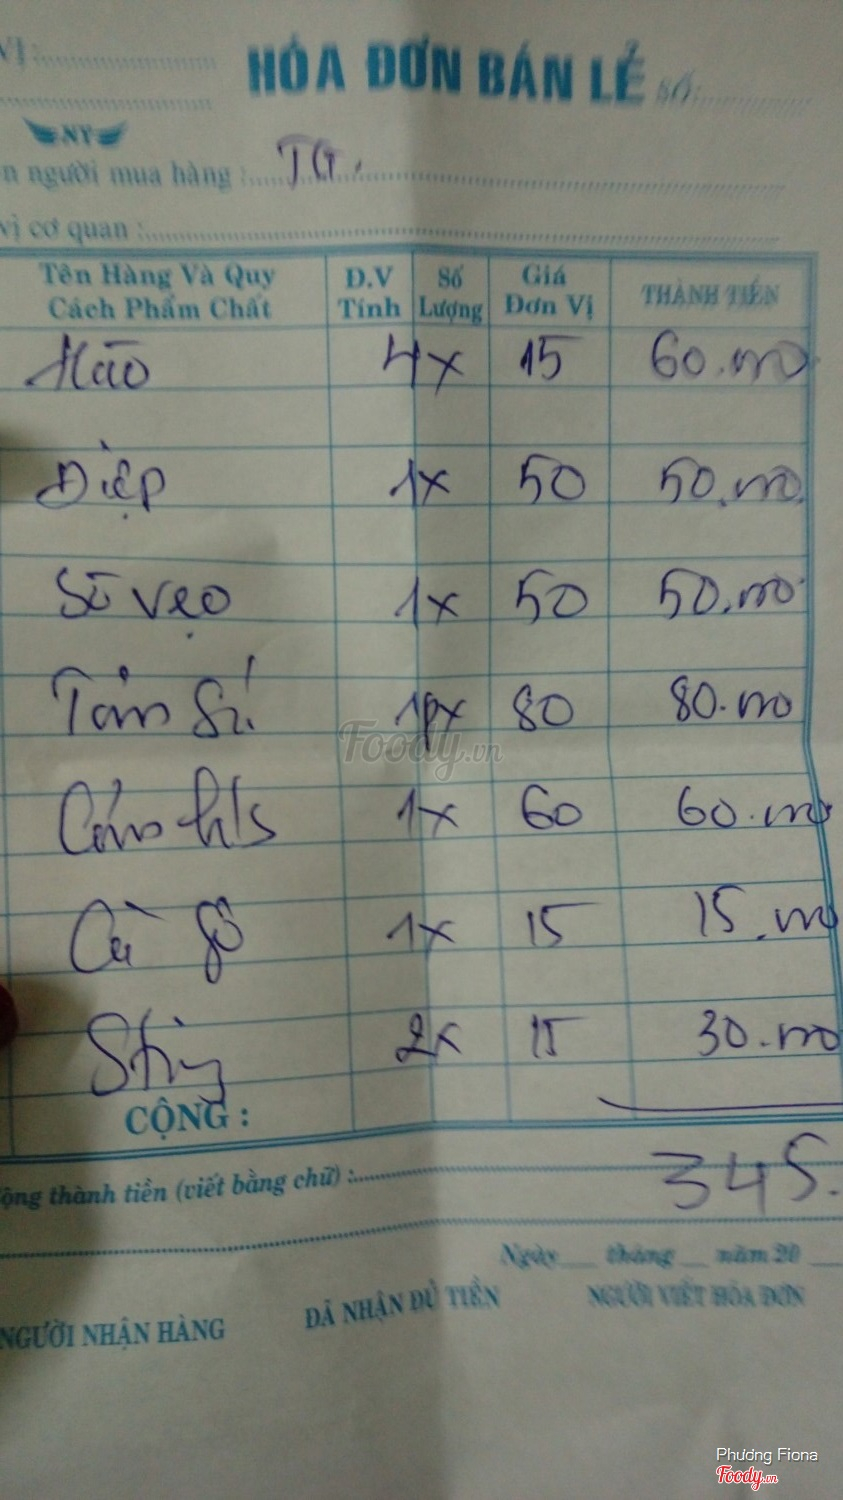 VỊ:
HÓA ĐƠN BÁN LẺ SỐ:
NT
n người mua hàng : TG.
vị cơ quan :
Tên Hàng Và Quy Cách Phẩm Chất Đ.V Tính Số Lượng Giá Đơn Vị THÀNH TIỀN
Hào 4x 15 60.000
Điệp 1x 50 50.000
Sò vẹo 1x 50 50.000
1px 80 80.000
Foody.vn
Cơm h/s 1x 60 60.000
1x 15 15.000
Sting 2x 15 30.000
CỘNG :
ộng thành tiền (viết bằng chữ) : 345.
Ngày tháng năm 20
NGƯỜI NHẬN HÀNG ĐÃ NHẬN ĐỦ TIỀN NGƯỜI VIẾT HÓA ĐƠN
Phương Fiona
Foody.vn